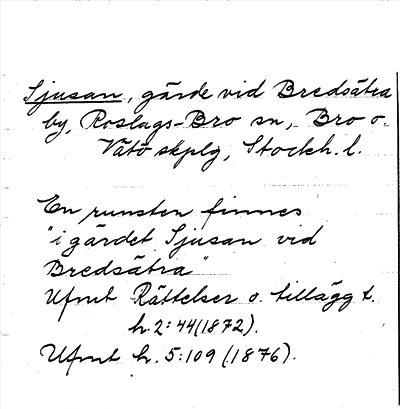 Sjusan, gärde vid Bredsätra
by, Roslags-Bro sn, Bro o.
Vätö skplg, Stockh. l.
En runsten finnes
"i gärdet Sjusan vid
Bredsätra"
Ufmt Rättelser o. tillägg t.
h. 2: 44 (1872).
Ufmt h. 5: 109 (1876).